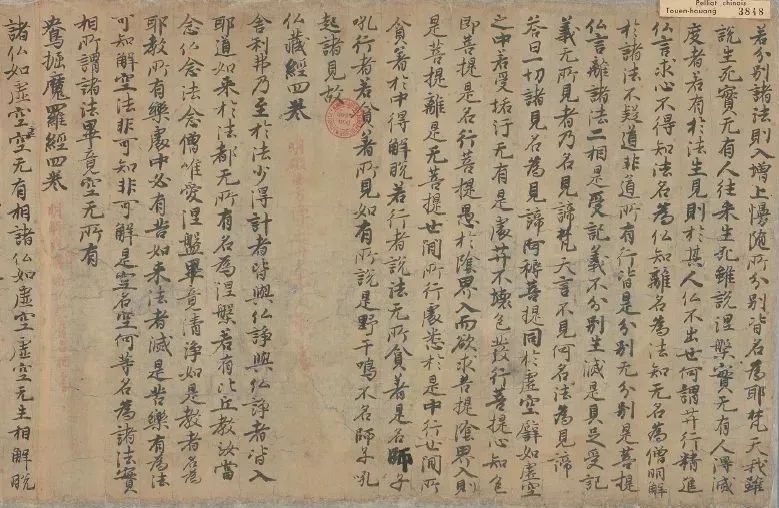 Pelliot chinois
Touen-houang 3848
若分別諸法則入增上慢隨所分別皆名為耶梵天我雖
說生死實无有人往来生死雖說涅槃實无有人得滅
度者若有於法生見則於其人仏不出世何謂艹艹行精進
仏言求心不得知法名為仏知離名為法知无名為僧明解
於諸法不疑道非道所有行皆是分別无分別是菩提
仏言離諸法二相是受記義不分別生滅是具足受記
義无所見者乃名見諦梵天言不見何名法為見諦
荅曰一切諸見名為見諦何稱菩提同於虛空譬如虛空
之中若受垢汙无有是處艹艹不壞色發行菩提心知色
即菩提是名行菩提愚於陰界入而欲求菩提陰界入則
是菩提離是无菩提世間所行處悉於是中行世間所
貪著於中得解脫若行者說法无所貪著是名師子
吼行者若貪著所見如有所說是野干鳴不名師子吼
起諸見故
仏藏經四卷
舍利弗乃至於法少得計者皆與仏諍與仏諍者皆入
耶道如来於法都无所有名為涅槃若有比丘教汝當
念仏念法念僧唯愛涅盤畢竟清淨如是教者名為
耶教所有樂處中必有苦如来法者滅是苦樂有為法
可知解空法非可知非可解是空名空何等名為諸法實
相所謂諸法畢竟空无所有
鴦掘魔羅經四卷
諸仏如虛空空无有相諸仏如虛空虛空无生相解脫